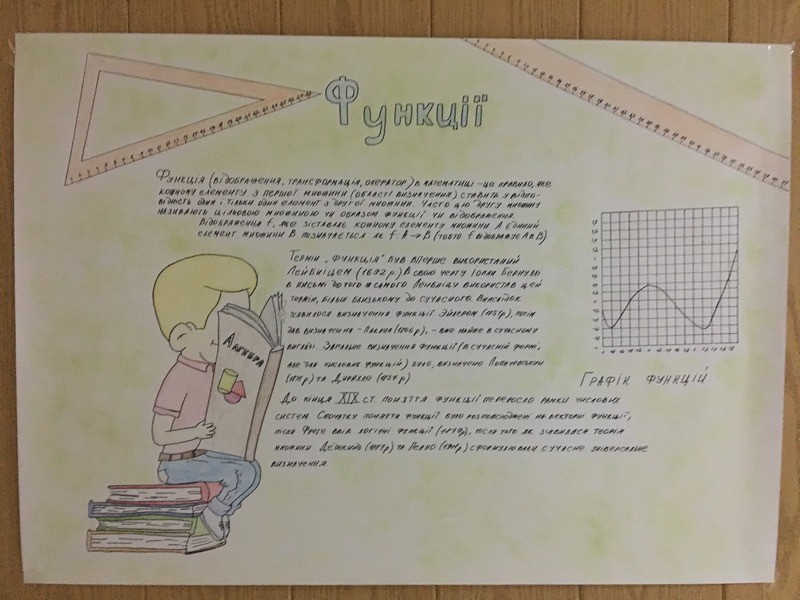 Функції
Функція (відображення, трансформація, оператор) в математиці – це правило, яке
кожному елементу з першої множини (області визначення) ставить у відпо-
відність один і тільки один елемент з другої множини. Часто цю другу множину
називають цільовою множиною чи образом функції чи відображення.
Відображення f, яке зіставляє кожному елементу множини A єдиний
елемент множини B позначається як f: A→B (тобто f відображує A в B)
Термін „функція" був вперше використаний
Лейбніцем (1692 р.) В свою чергу Іоган Бернуллі
в письмі до того ж самого Лейбніцу використав цей
термін, більш близькому до сучасного. Внаслідок
з'явилося визначення функції Эйлером (1751р), потім
дав визначення – Лакруа (1806р), – вже майже в сучасному
вигляді. Загальне визначення функції (в сучасній формі,
але для числових функцій) було, визначено Лобачевським
(1834р) та Дирихле (1837 р)
До кінця XIX ст. поняття функції переросло рамки числових
систем. Спочатку поняття функції було розповсюджено на векторні функції,
після Фреге ввів логічні функції (1879р), після того як з'явилася теорія
множини Дедекінд (1887р) та Пеано (1911р) сформулювали сучасне універсальне
визначення.
Алгебра
Графік функцій